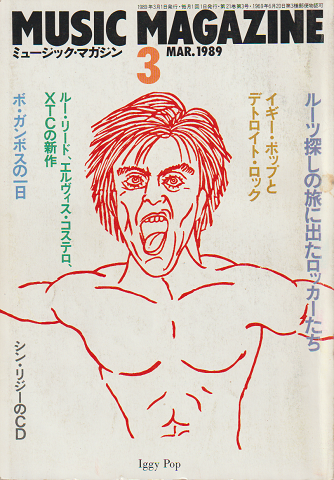 1989年3月1日発行・毎月1回1日発行・第21巻第3号・1969年6月20日第3種郵便物認可
MUSIC MAGAZINE
ミュージック・マガジン
MAR.1989
3
ルーツ探しの旅に出たロッカーたち
イギー・ポップと
デトロイト・ロック
ルー・リード、エルヴィス・コステロ、
XTCの新作
ボ・ガンボスの一日
シン・リジーのCD
Iggy Pop